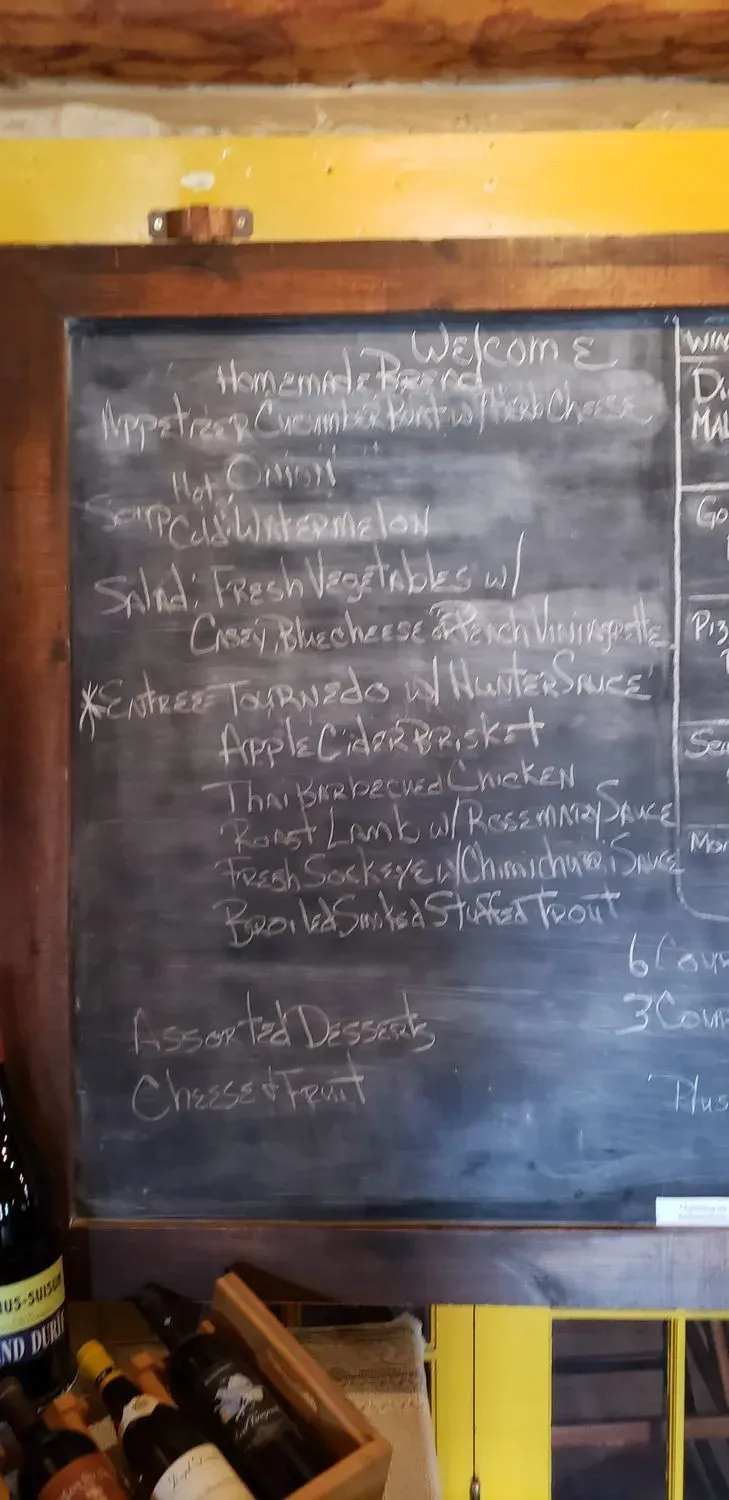 Welcome
Homemade Bread
Appetizer Cucumber Boat w/ Herb Cheese
Hot, Onion
Soup
Cold, Watermelon
Salad: Fresh Vegetables w/
Casey, Bluecheese or Peach
*Entree Tournedo w/ Hunter Sauce
Apple Cider Brisket
Thai Barbecued Chicken
Roast Lamb w/ Rosemary Sauce
Fresh Sockeye w/ Chimichurri Sauce
Broiled Smoked Stuffed Trout
Assorted Desserts
Cheese & Fruit
WIN
Di
MAL
Go
Piz
Sea
Mor
6 Cour
3 Cour
Plus
US-SUISU
ND DURI